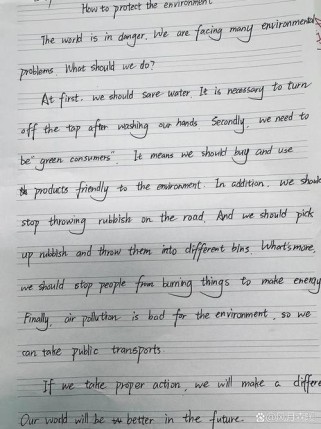 How to protect the environment
The world is in danger. We are facing many environmental
problems. What should we do?
At first, we should save water. It is necessary to turn
off the tap after washing our hands. Secondly, we need to
be "green consumers". It means we should buy and use
products friendly to the environment. In addition, we should
stop throwing rubbish on the road. And we should pick
up rubbish and throw them into different bins. What's more,
we should stop people from burning things to make energy
Finally, air pollution is bad for the environment, so we
can take public transports.
If we take proper action, we will make a differe
Our world will be better in the future.